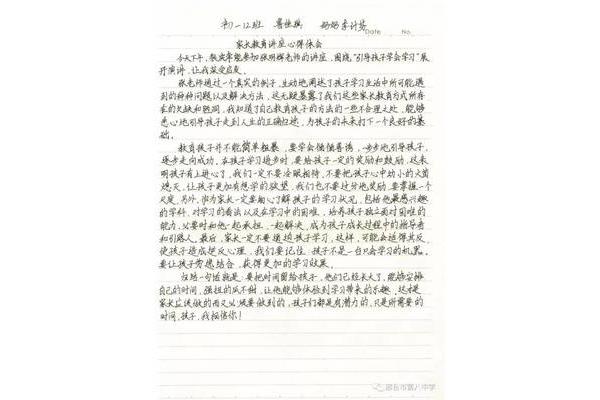 初一12班 妈妈李计芬
Date No.
家长教育讲座心得体会
今天下午,我有幸能参加张明辉老师的讲座,围绕“引导孩子学会学习”展
开演讲,让我深受启发。
张老师通过一个真实的例子,生动地阐述了孩子学习生活中所可能遇
到的种种问题以及解决方法,这无疑暴露了我们这些家长教育方式所存
在的欠缺和脱洞,我知道了自己教育孩子的方法的一些不合理之处,能够
悉心地引导孩子走到人生的正确位迹,为孩子的未来打下一个良好的基
础。
教育孩子并不能简单粗暴,要学会循循善诱,一步步地引导孩子,
逐步走向成功。在孩子学习进步时,要给孩子一定的奖励和鼓励,这表
明孩子有上进心了,我们一定不要冷眼相待,不要把孩子心中幼小的火苗
熄灭,让孩子更加有想学的欲望,我们也不要过分地奖励,要掌握一个
尺度。另外,作为家长一定要细心了解孩子的学习状况,包括他最感兴趣
的学科,对学习的看法以及在学习中的困难,培养孩子独立面对困难的
能力,必要时和他一起承担,一起解决,成为孩子成长过程中的指导者
和引路人。最后,家长一定不要逼迫孩子学习,这样,可能会适得其反,
使孩子造成逆反心理,我们要记住:孩子不是一台只会学习的机器,
要让孩子劳逸结合,获得更加的学习效果。
总结一句话就是:要把时间留给孩子,他们已经长大了,能够安排
自己的时间,强扭的瓜不甜,让他能够体验到学习带来的乐趣,这才是
家长应该做的而又必须要做到的,孩子们都是有潜力的,只是所需要的
时间,孩子,我相信你!
邵东市第八中学